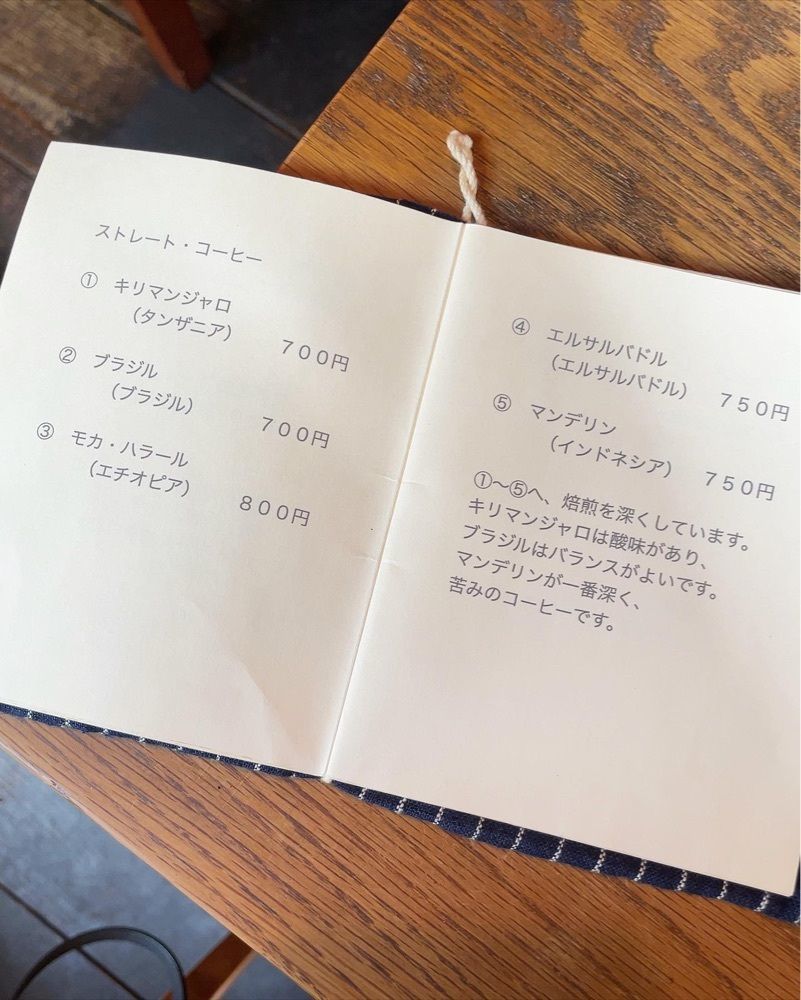 ストレート・コーヒー
① キリマンジャロ
(タンザニア)
７００円
② ブラジル
(ブラジル)
７００円
③ モカ・ハラール
(エチオピア)
８００円
④ エルサルバドル
(エルサルバドル)
７５０円
⑤ マンデリン
(インドネシア)
７５０円
①〜⑤へ、焙煎を深くしています。
キリマンジャロは酸味があり、
ブラジルはバランスがよいです。
マンデリンが一番深く、
苦みのコーヒーです。